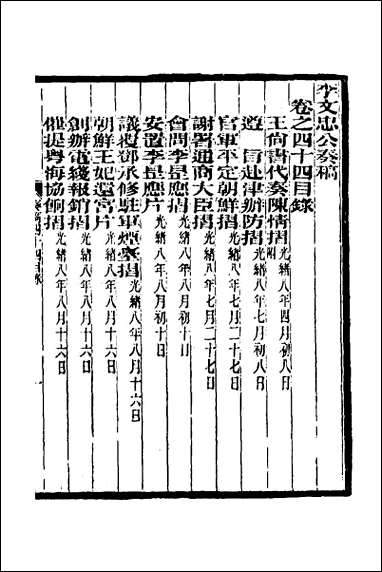 李文忠公奏稿
卷之四十四目錄
王尚書代奏陳情摺 附 光緒八年四月初八日
遵 旨赴津辦防摺 光緒八年七月初八日
官軍平定朝鮮摺 光緒八年七月二十七日
謝署通商大臣摺 光緒八年七月二十七日
會問李昰應摺 光緒八年八月初十日
安置李昰應片 光緒八年八月初十日
議覆鄧承修駐軍煙臺摺 光緒八年八月十六日
朝鮮王妃還宮片 光緒八年八月十六日
創辦電綫報銷摺 光緒八年八月十六日
催提粵海協餉摺 光緒八年八月十六日
奏稿四十四目錄 一